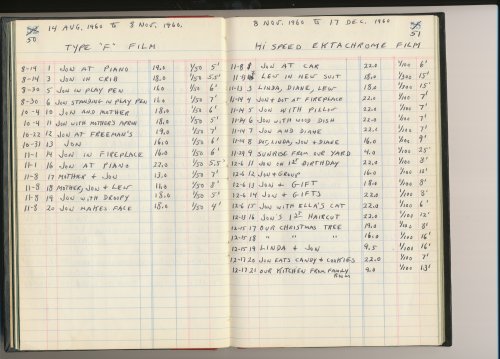 50
14 AUG, 1960 to 8 NOV, 1960.
TYPE "F" FILM
8-14 1 JON AT PIANO 19.0 1/50 5'
8-14 3 JON IN CRIB 18.0 1/50 5'
8-30 5 JON IN PLAY PEN 16.0 1/50 6'
8-30 6 JON STANDING IN PLAY PEN 18.0 1/50 6'
10-4 10 JON AND MOTHER 18.0 1/50
10-4 11 JON WITH MOTHER'S APRON 18.0 1/50 5'
10-22 12 JON AT FREEMAN'S 19.0 1/50 7'
10-31 13 JON 16.0 1/50 6'
11-1 14 JON IN FIREPLACE 16.0 1/50 6'
11-1 16 JON AT PIANO 22.0 1/50 5.5'
11-8 17 MOTHER & JON 13.0 1/50 7'
11-8 18 MOTHER, JON & LEW 11.0 1/50 8'
11-8 19 JON WITH DENIPY 18.0 1/50 5'
11-8 20 JON MAKES FACE 18.0 1/50 4'
51
8 NOV. 1960 TO 17 DEC. 1960
HI SPEED EKTACHROME FILM
11-8 JON AT CAR 22.0 1/100 6'
LEW IN NEW SUIT 18.0 1/100 15'
11-13 3 LINDA, DIANE, LEW 18.0 1/100 15'
11-14 4 JON & DOT AT FIREPLACE 22.0 1/100 7'
11-14 5 JON WITH PILLOW 22.0 1/100 7'
11-14 6 JON WITH WOOD DISH 22.0 1/100 7'
11-14 7 JON AND DIANE 22.0 1/100 7'
11-24 8 DOT, LINDA, JON & DIANE 16.0 1/100 9'
11-29 9 SUNRISE FROM OUR YARD 4.0 1/100 25'
12-6 11 JON ON 1ST BIRTHDAY 22.0 1/100 8'
12-6 12 JON & GROUP 16.0 1/100 12'
12-6 13 JON & GIFT 18.0 1/100 8'
12-6 14 JON & GIFTS 22.0 1/100 8'
12-6 15 JON WITH ELLA'S CAT 22.0 1/100 6'
12-13 16 JON'S 1ST HAIRCUT 22.0 1/100 12'
12-15 17 OUR CHRISTMAS TREE 19.0 1/100 8'
12-15 18 " " " 16.0 1/100 16'
12-15 19 LINDA & JON 9.5 1/100 16'
12-17 20 JON EATS CANDY & COOKIES 22.0 1/100 7'
12-17 21 OUR KITCHEN FROM FAMILY ROOM 8.0 1/100 13'